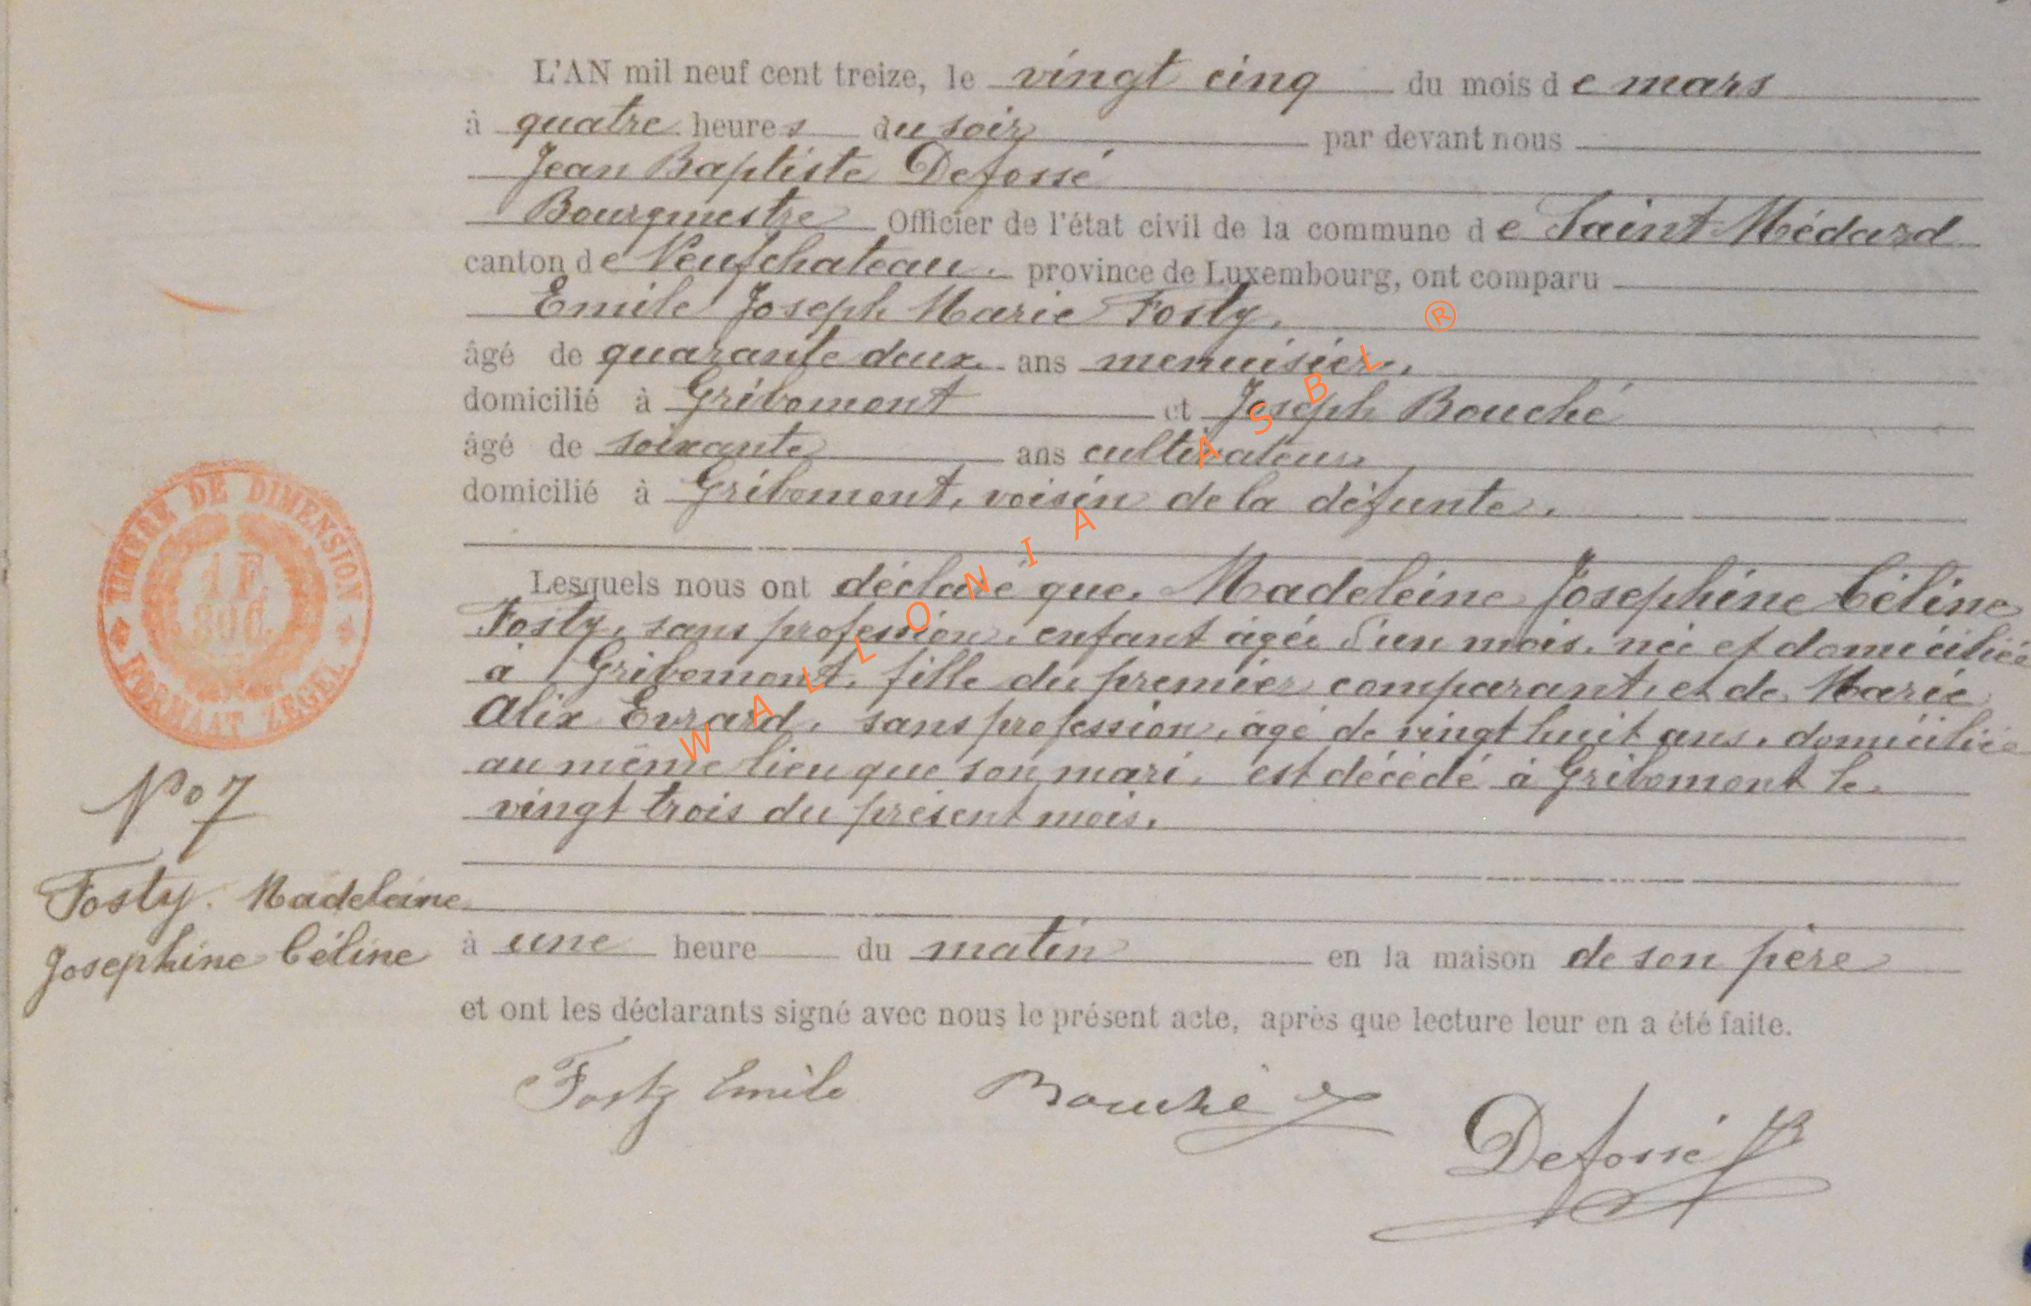 L'AN mil neuf cent treize, le vingt cinq du mois de mars
à quatre heures du soir par devant nous
Jean Baptiste Defossé
Bourgmestre Officier de l'état civil de la commune de Saint Médard
canton de Neufchateau. province de Luxembourg, ont comparu
Emile Joseph Marie Fosty,
âgé de quarante deux ans menuisier,
domicilié à Gribomont et Joseph Bouché
âgé de soixante ans cultivateur
domicilié à Gribomont, voisin de la défunte.
Lesquels nous ont déclaré que, Madeleine Josephine Céline
Fosty, sans profession, enfant âgée d'un mois, née et domiciliée
à Gribomont, fille du premier comparant, et de Marie
Alix Evrard, sans profession, âgé de vingt huit ans, domiciliée
au même lieu que son mari, est décédé à Gribomont le
vingt trois du présent mois.
à une heure du matin en la maison de son père
et ont les déclarants signé avec nous le présent acte, après que lecture leur en a été faite.
Fosty Emile Bouché J Defossé JB
TIMBRE DE DIMENSION
1 F.
30 C.
FORMAAT ZEGEL
No 7
Fosty. Madeleine
Josephine Céline
WALLONIA ASBL ®